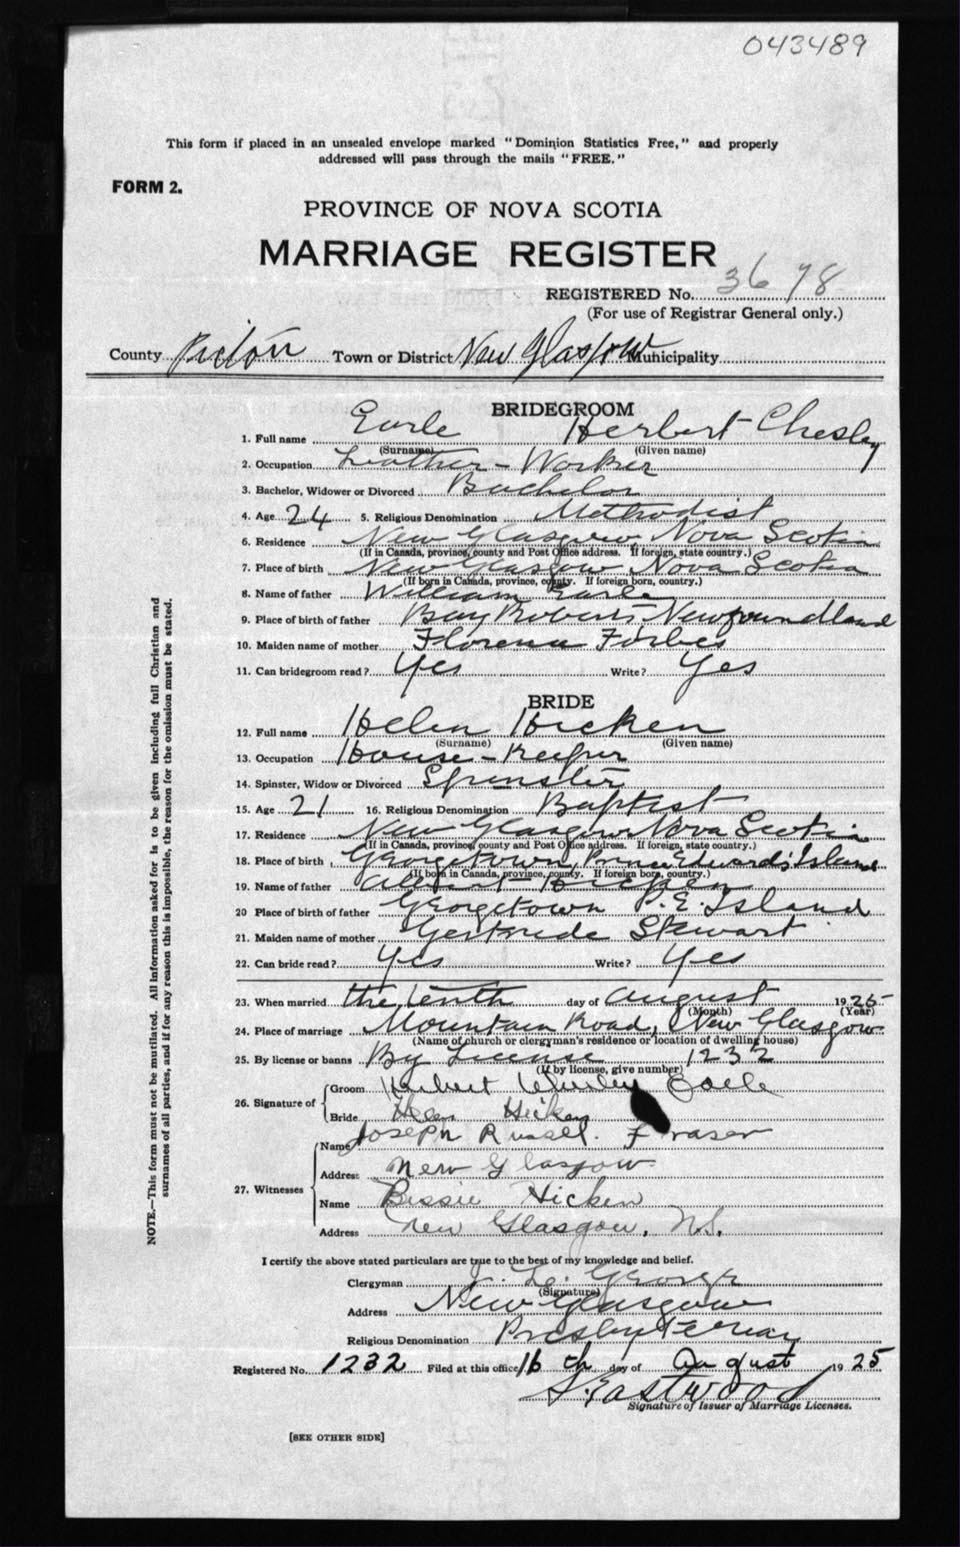 043489
This form if placed in an unsealed envelope marked "Dominion Statistics Free," and properly
addressed will pass through the mails "FREE."
FORM 2.
PROVINCE OF NOVA SCOTIA
MARRIAGE REGISTER
REGISTERED No. 3678
(For use of Registrar General only.)
County Pictou Town or District New Glasgow Municipality
BRIDEGROOM
1. Full name Earle Herbert Chesley
(Surname) (Given name)
2. Occupation Leather-Worker
3. Bachelor, Widower or Divorced Bachelor
4. Age 24 5. Religious Denomination Methodist
6. Residence New Glasgow Nova Scotia
(If in Canada, province, county and Post Office address. If foreign, state country.)
7. Place of birth New Glasgow Nova Scotia
(If born in Canada, province, county. If foreign born, country.)
8. Name of father William Earle
9. Place of birth of father Bay Roberts Newfoundland
10. Maiden name of mother Florence Forbes
11. Can bridegroom read? Yes Write? Yes
BRIDE
12. Full name Helen Hicken
(Surname) (Given name)
13. Occupation House-Keeper
14. Spinster, Widow or Divorced Spinster
15. Age 21 16. Religious Denomination Baptist
17. Residence New Glasgow Nova Scotia
(If in Canada, province, county and Post Office address. If foreign, state country.)
18. Place of birth Georgetown, Prince Edward Island
(If born in Canada, province, county. If foreign born, country.)
19. Name of father Albert Hicken
20 Place of birth of father Georgetown P.E. Island
21. Maiden name of mother Gertrude Stewart
22. Can bride read? Yes Write? Yes
23. When married the tenth day of August 1925
(Month) (Year)
24. Place of marriage Mountain Road, New Glasgow
(Name of church or clergyman's residence or location of dwelling house)
25. By license or banns By License 1232
(If by license, give number)
26. Signature of
Groom Herbert Chesley Earle
Bride Helen Hicken
27. Witnesses
Name Joseph Russel. Fraser
Address New Glasgow
Name Bessie Hicken
Address New Glasgow, N.S.
I certify the above stated particulars are true to the best of my knowledge and belief.
Clergyman George
(Signature)
Address New Glasgow
Religious Denomination Presbyterian
Registered No. 1232 Filed at this office 16 th day of August 1925
S. Eastwood
Signature of Issuer of Marriage Licenses.
[SEE OTHER SIDE]
NOTE.—This form must not be mutilated. All information asked for is to be given including full Christian and
surnames of all parties, and if for any reason this is impossible, the reason for the omission must be stated.